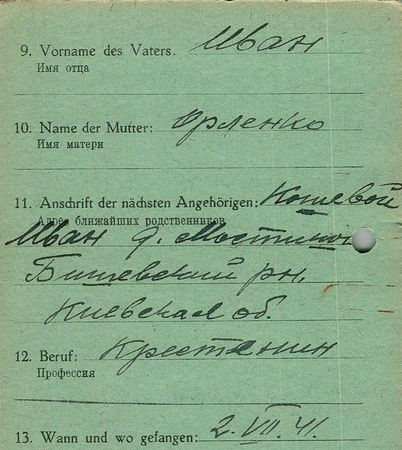 9. Vorname des Vaters. Иван
Имя отца
10. Name der Mutter: Орленко
Имя матери
11. Anschrift der nächsten Angehörigen: Кошевой
Адрес ближайших родственников
Иван д. Мостище
Бишевский рн.
Киевская об.
12. Beruf: Крестянин
Профессия
13. Wann und wo gefangen: 2.VII.41.